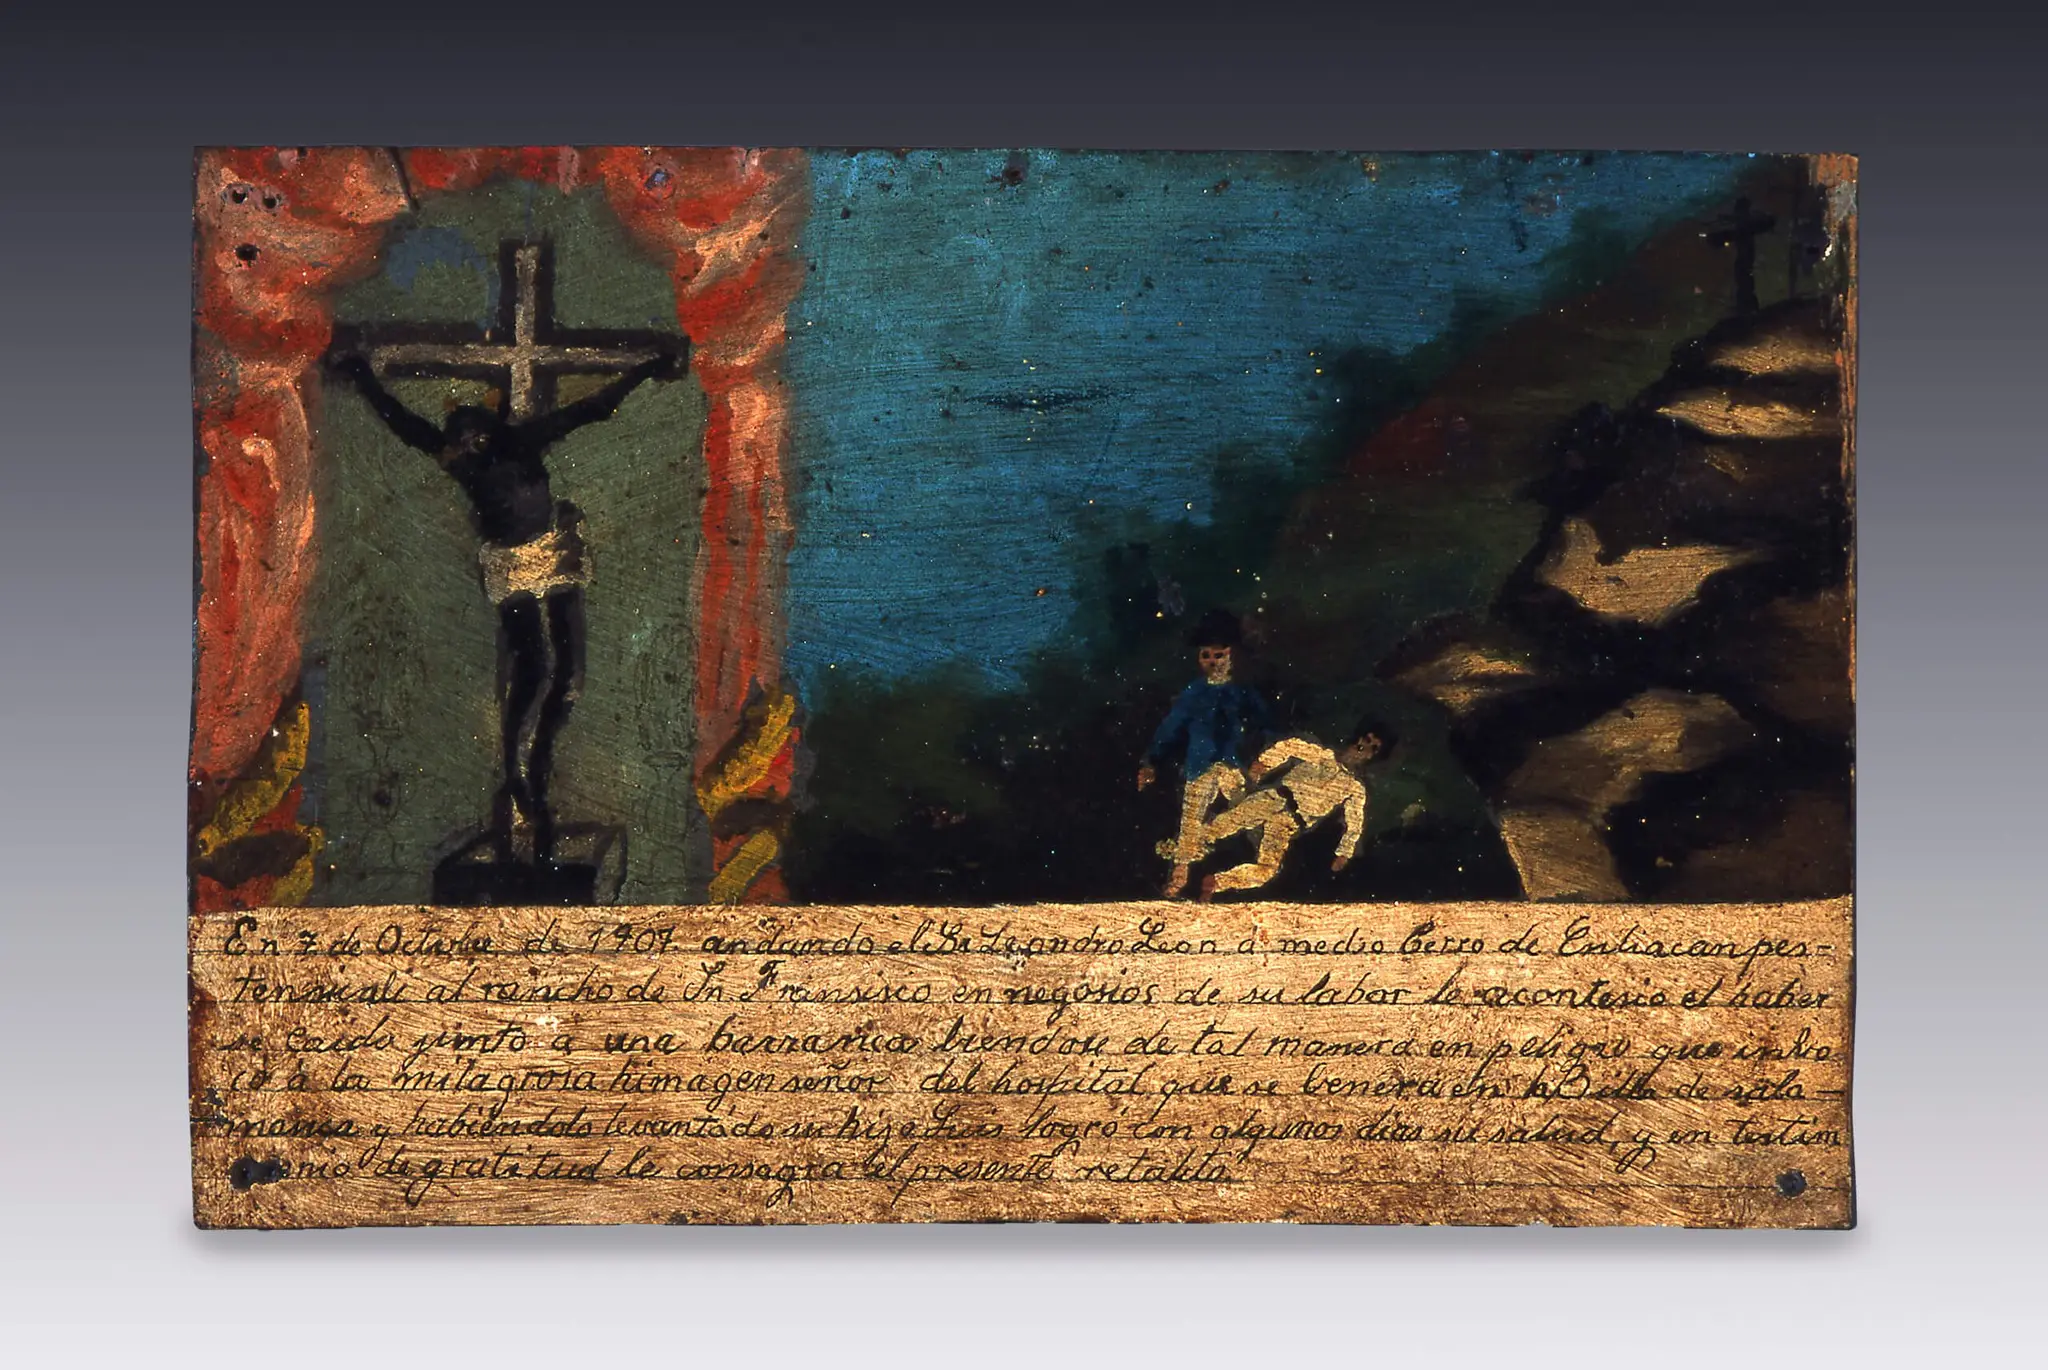 En 7 de Octubre de 1907. andando el Sr Leandro Leon a medio Cerro de Culiacan per-
tensiente al rancho de Sn Fransisco en negosios de su labor le acontesio el haber
se Caido junto a una barranca biendose de tal manera en peligro que inbo
co à la milagrosa himagen señor del hospital que se benera en la Billa de sala-
manca y habiéndolo levantado su hijo Luis logró con algunos dias su salud, y en testim
onio de gratitud le consagra el presente retablo.